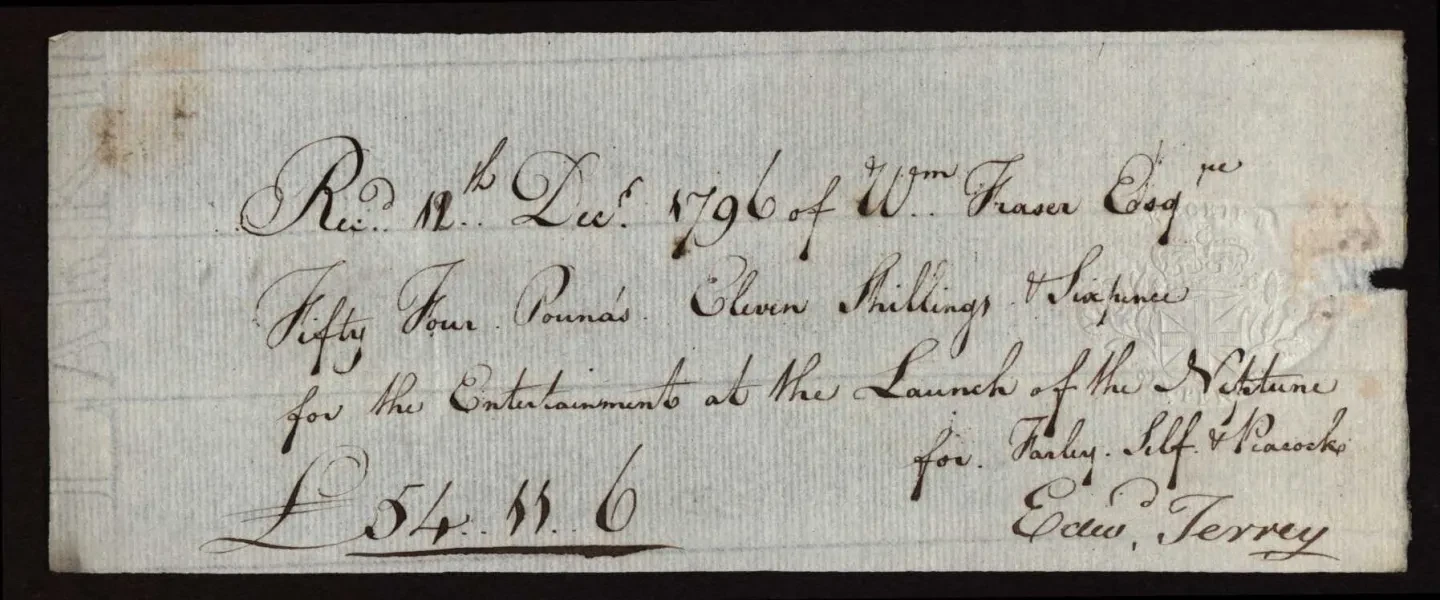 Rec.d 12.th Dec.r 1796 of W.m Fraser Esq.re
Fifty Four Pounds Eleven Shillings & Sixpence
for the Entertainment at the Launch of the Neptune
for Farley. Self. & Peacock
£ 54.. 11.. 6
Edw.d Terrey